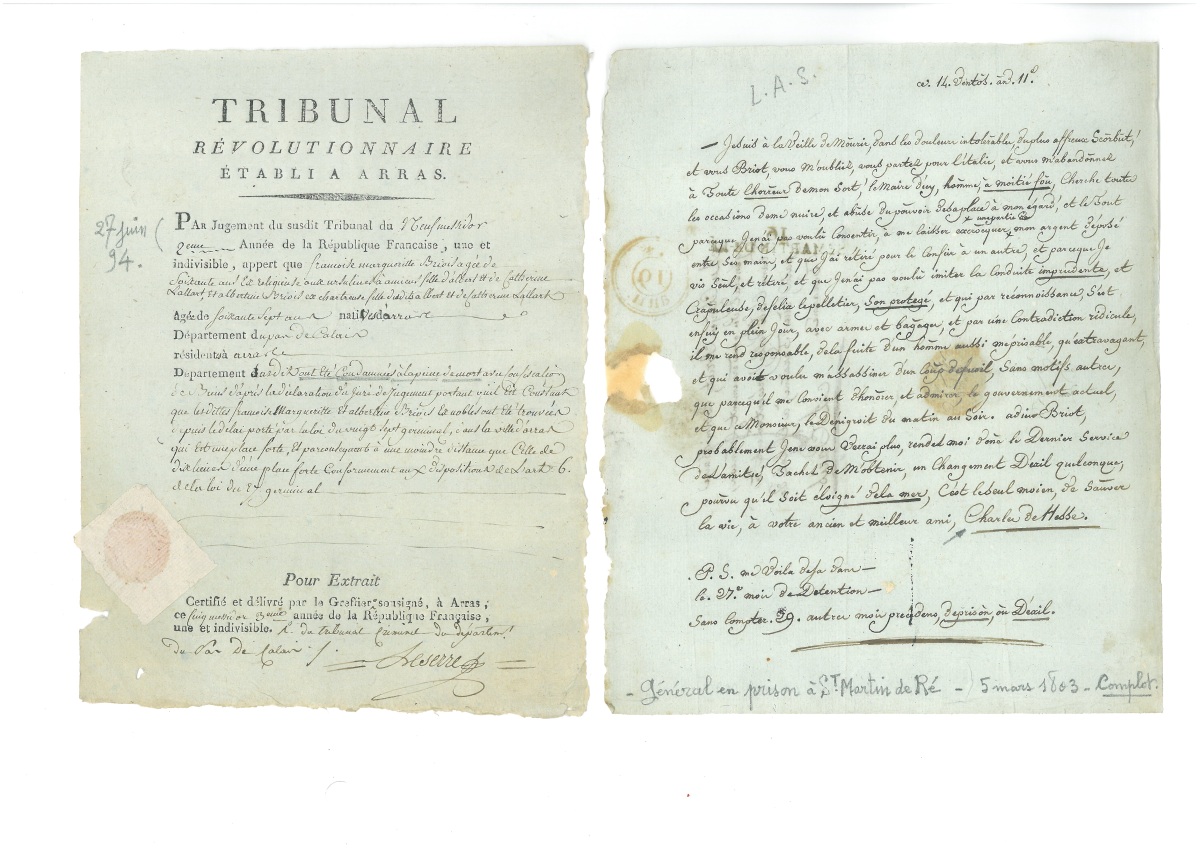 TRIBUNAL
RÉVOLUTIONNAIRE
ÉTABLI A ARRAS.
27 juin
94.
PAR Jugement du susdit Tribunal du Neuf messidor
2eme Année de la République Française, une et
indivisible, appert que francoise margueritte Briois agée de
soixante ans Ex religieuse aux ursulines d'amiens fille d'albert et de Catherine
Lallart, et albertine Briois ex chartreuse fille dud. albert et de Catherine Lallart
Agée de soixante sept ans native d'arras
Département du pas de Calais
résidents à arras
Département dudit ont été Condamnées à la peine de mort avec confiscation
de Biens d'après la déclaration du juré de jugement portant qu'il est Constant
que lesdittes francoise Margueritte et albertine Briois Ex nobles ont été trouvées
depuis le delai porté par la loi du vingt sept germinal, dans la ville d'arras
qui est une place forte, et par conséquent à une moindre distance que Celle de
dix lieues d'une place forte Conformement aux dispositions de L'art 6.
de la loi du 27 germinal
Pour Extrait
Certifié et délivré par le Greffier soussigné, à Arras,
ce cinq messidor 3eme année de la République Française,
une et indivisible. du tribunal Criminel du departemt
du Pas De Calais
Leserre
L.A.S.
ce. 14. Ventôs. an. 11e.
— Je suis à la Veille de Mourir, dans les douleurs intolérable, du plus affreux Scorbut!
et vous Briot, vous m'oubliez, vous partez pour l'italie, et vous m'abandonnez
à Toute l'horreur de mon Sort! le Maire d'icy, homme, à moitié fou, Cherche toute
les occasions de me nuire, et abuse du pouvoir de sa place à mon égard! et le Tout
parceque Je n'ai pas voulû Consentir, à me laisser escrocquer, mon argent déposé
entre Ses main, et que j'ai rétiré pour le Confier à un autre, et parceque Je
vis Seul, et rétiré, et que Je n'ai pas voulû imiter la Conduite imprudente, et
Crapuleuse, de félix lepelletier, Son protegé, et qui par réconnoissance, S'est
enfuÿ en plein Jour, avec armes et bagages, et par une Contradiction rédicule,
il me rend responsable, de la fuite d'un homme aussi meprisable, qu'extravagant,
et qui avoit voulu m'assassiner d'un Coup de fusil, Sans motifs autres,
que parcequ'il me Convient d'honorer et admirer le gouvernement actuel,
et que ce Monsieur, le Denigroit du matin au Soir. adieu Briot,
probablement Je ne vous Verrai plus, rendez moi donc le Dernier Service
de L'amitié, Tachez de M'obtenir, un Changement D'exil quelconque,
pourvu qu'il Soit éloigné de la mer, C'est le Seul moien, de Sauver
la vie, à votre ancien et meilleur ami, Charles de Hesse.
P. S. me Voila deja dans —
le 27e mois de Détention —
Sans Compter 39. autres mois précédens, de prison, où D'éxil.
- Général en prison à St Martin de Ré - 5 mars 1803 - Complot.